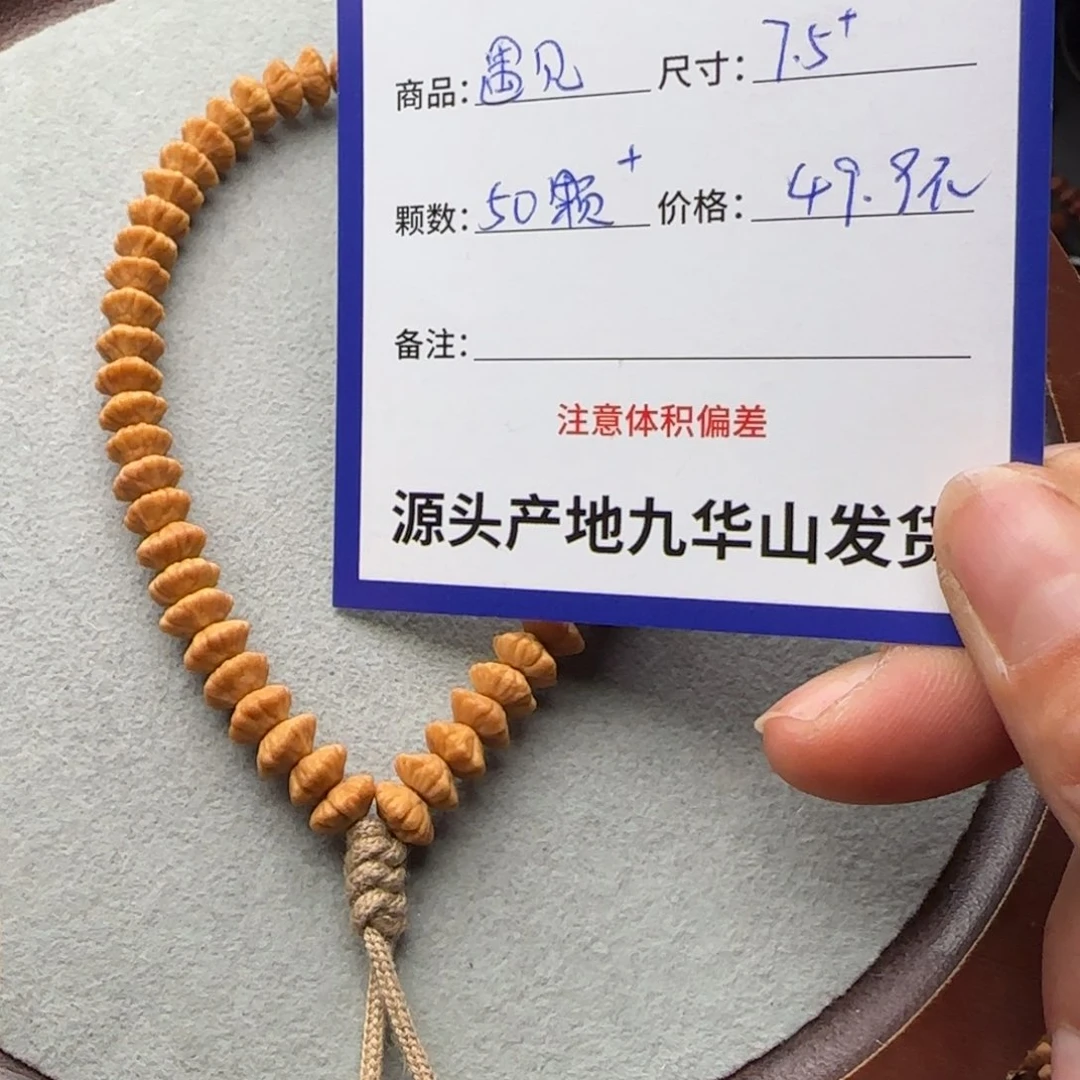 商品：遇见 尺寸：7.5+
颗数：50颗+ 价格：49.9元
备注：
注意体积偏差
源头产地九华山发货